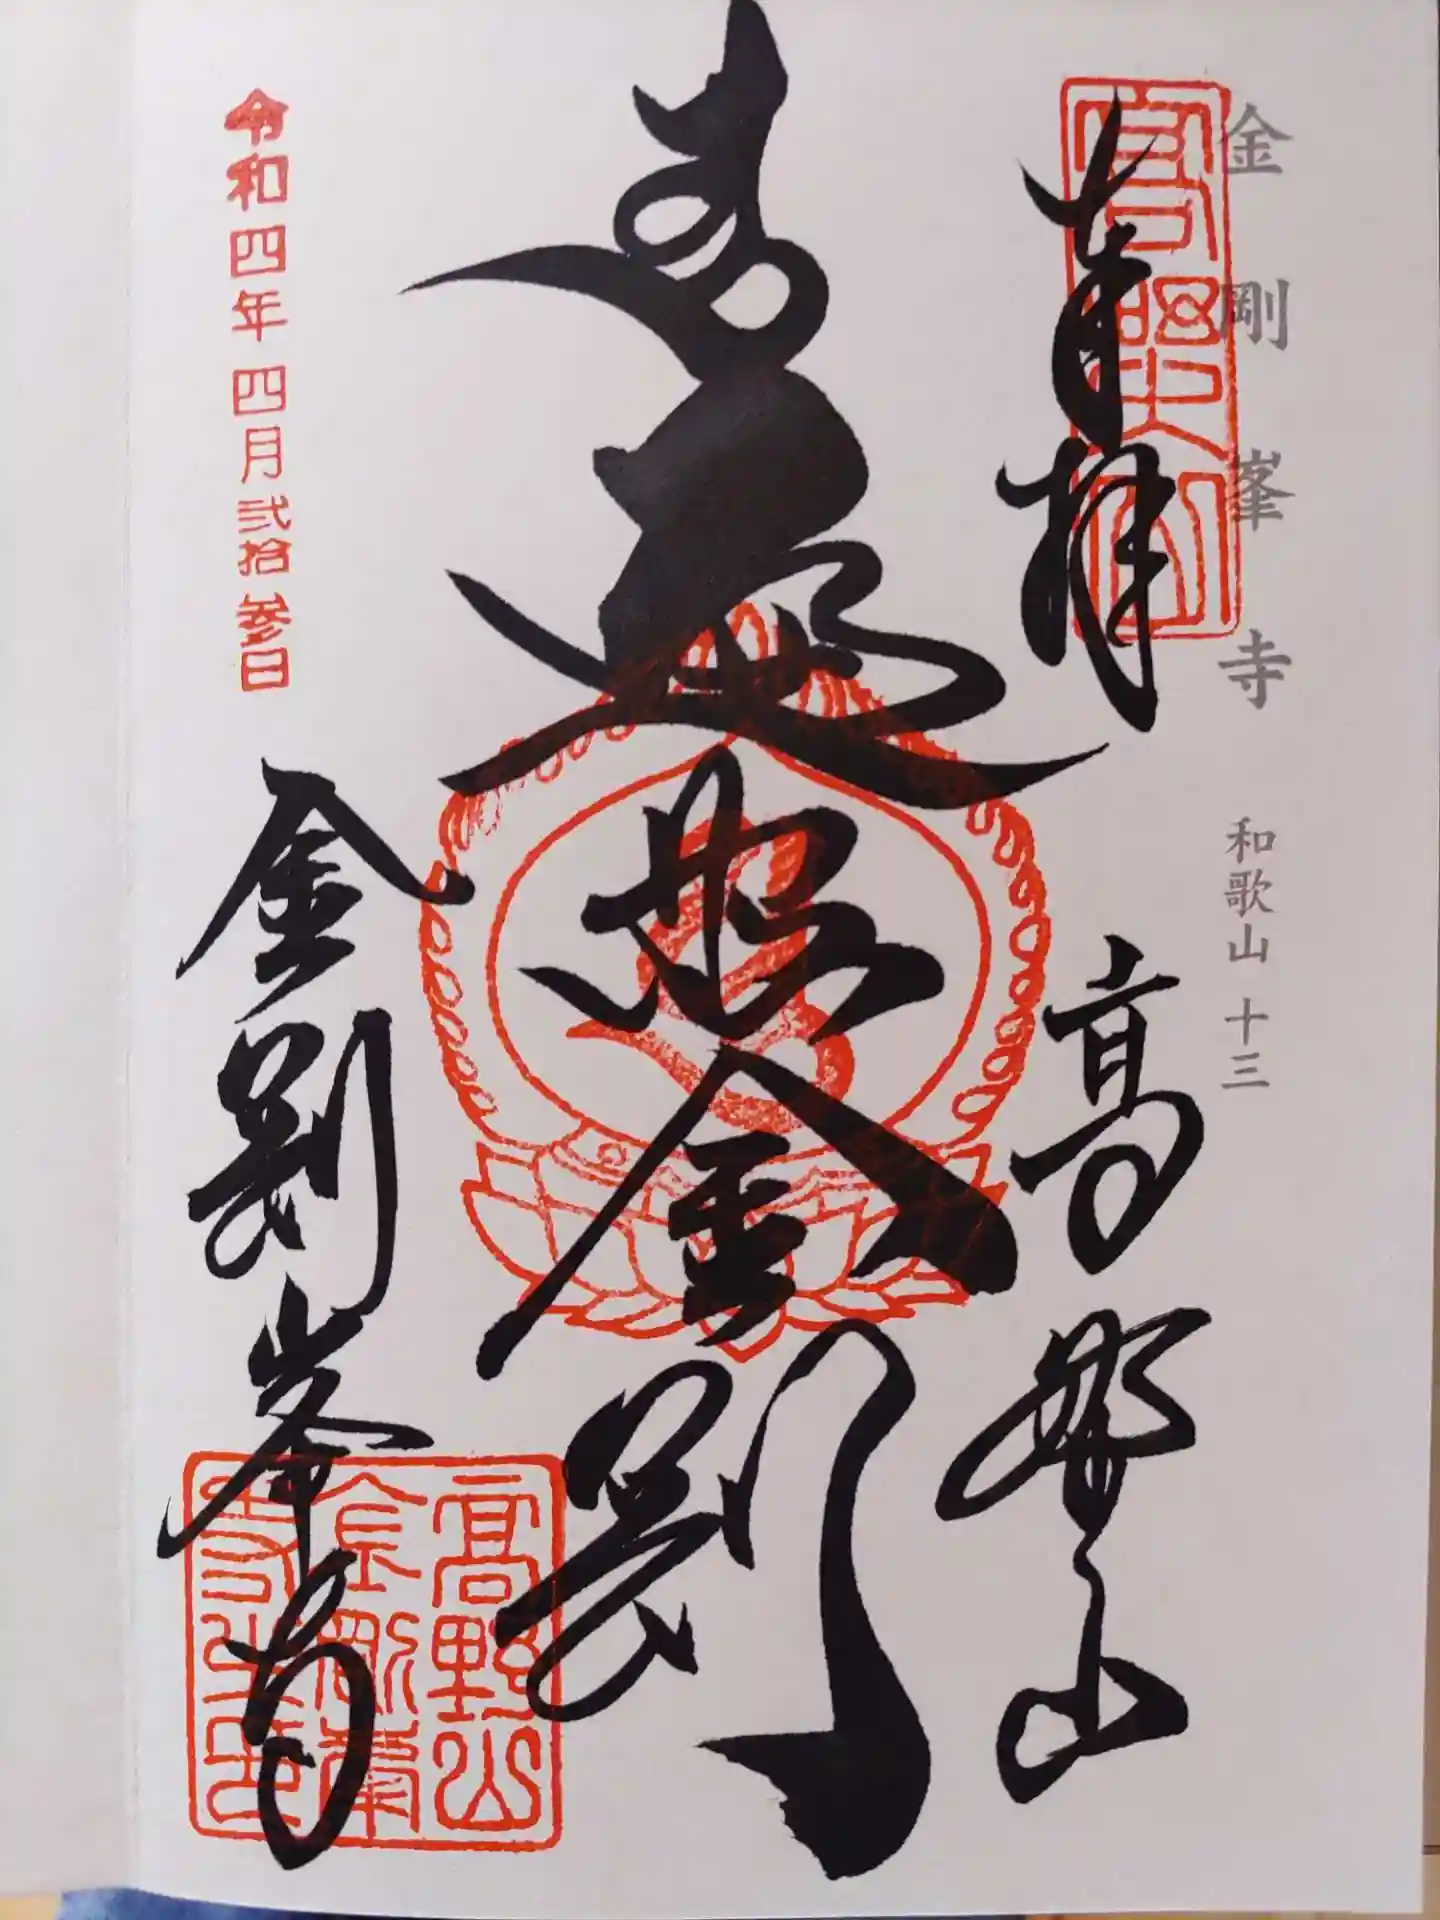 金剛峯寺 和歌山 十三
奉拝 高野山
高野山
遍照金剛
令和四年四月弐拾参日
金剛峯寺
高野山
金剛峯
寺之印